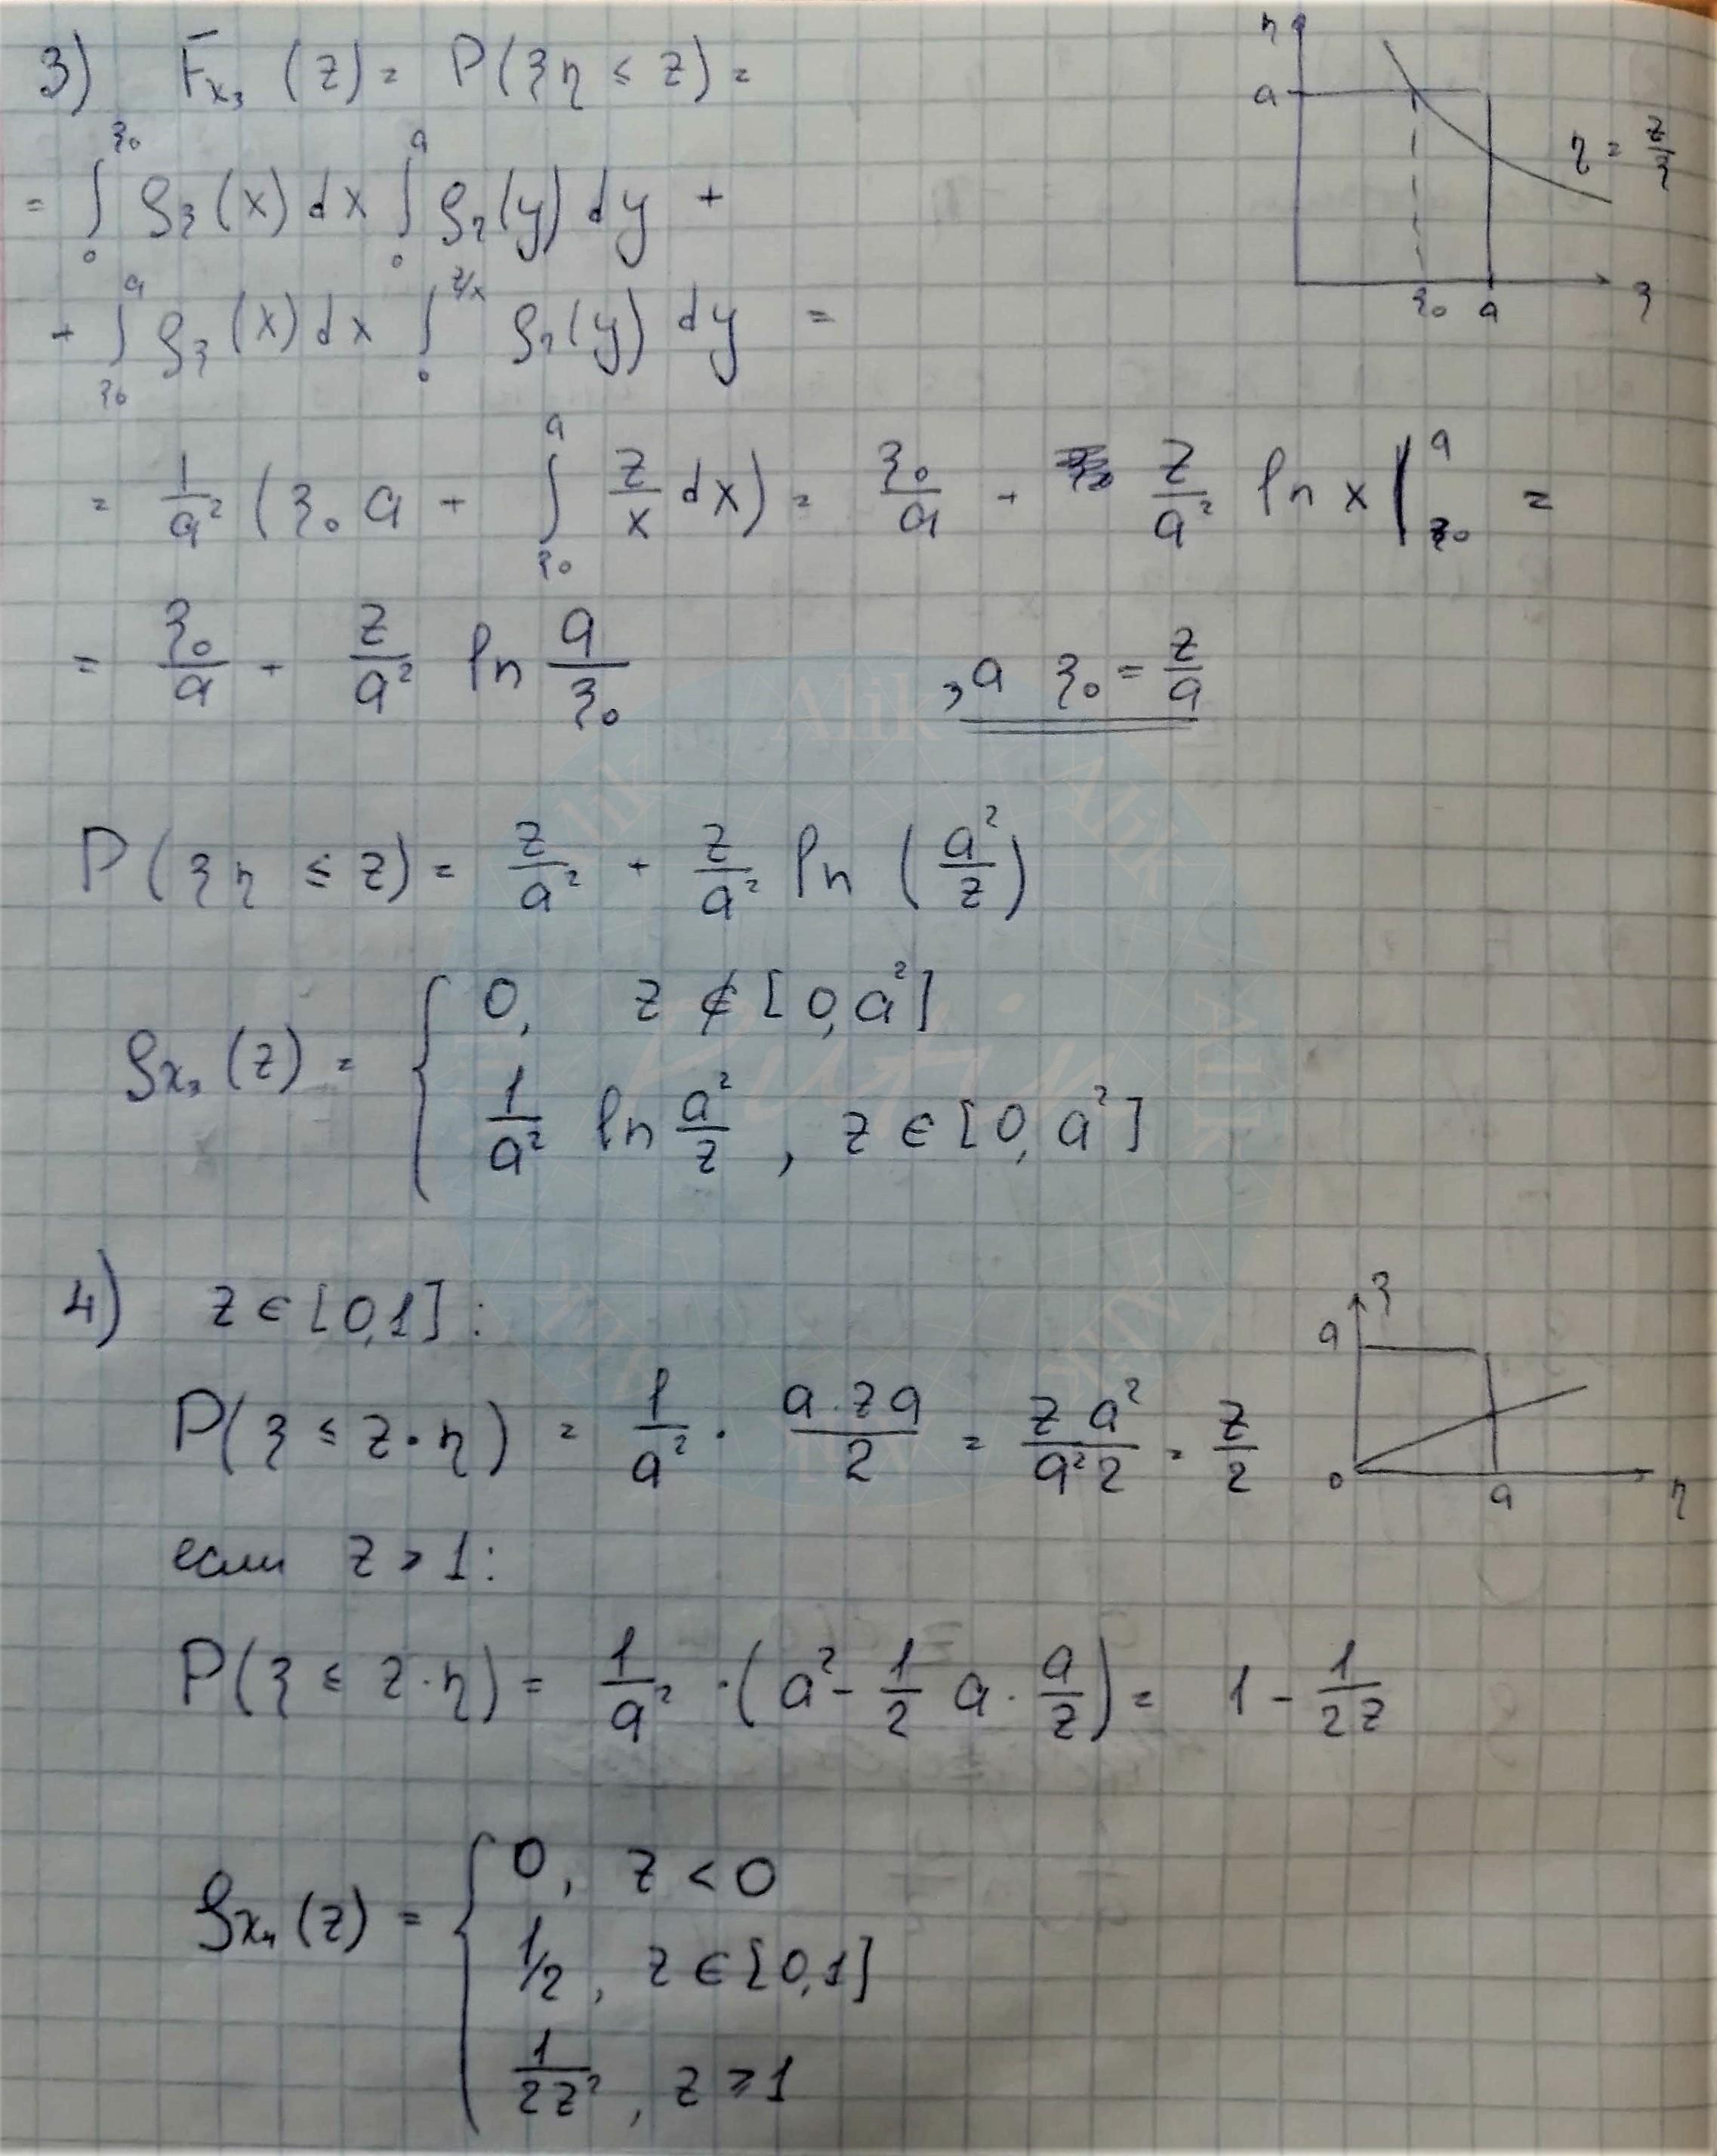 3) F_{x₃}(z) = P(ξη ≤ z) =
= ∫_0^{ξ₀} ρ_ξ(x)dx ∫_0^a ρ_η(y)dy +
+ ∫_{ξ₀}^a ρ_ξ(x)dx ∫_0^{z/x} ρ_η(y)dy =
η
a
η = z/ξ
ξ₀ a ξ
= 1/a² (ξ₀ a + ∫_{ξ₀}^a z/x dx) = ξ₀/a + z/a² ln x |_{ξ₀}^a =
= ξ₀/a + z/a² ln a/ξ₀ , a ξ₀ = z/a
P(ξη ≤ z) = z/a² + z/a² ln (a²/z)
ρ_{x₃}(z) = { 0, z ∉ [0, a²]
1/a² ln a²/z , z ∈ [0, a²]
4) z ∈ [0,1] :
P(ξ ≤ z·η) = 1/a² · a·za/2 = za²/a²2 = z/2
ξ
a
0 a η
если z > 1:
P(ξ ≤ z·η) = 1/a² · (a² - 1/2 a · a/z) = 1 - 1/2z
ρ_{x₄}(z) = { 0, z < 0
1/2 , z ∈ [0,1]
1/2z² , z ≥ 1
Alik
Alik
Alik
Alik
Putin